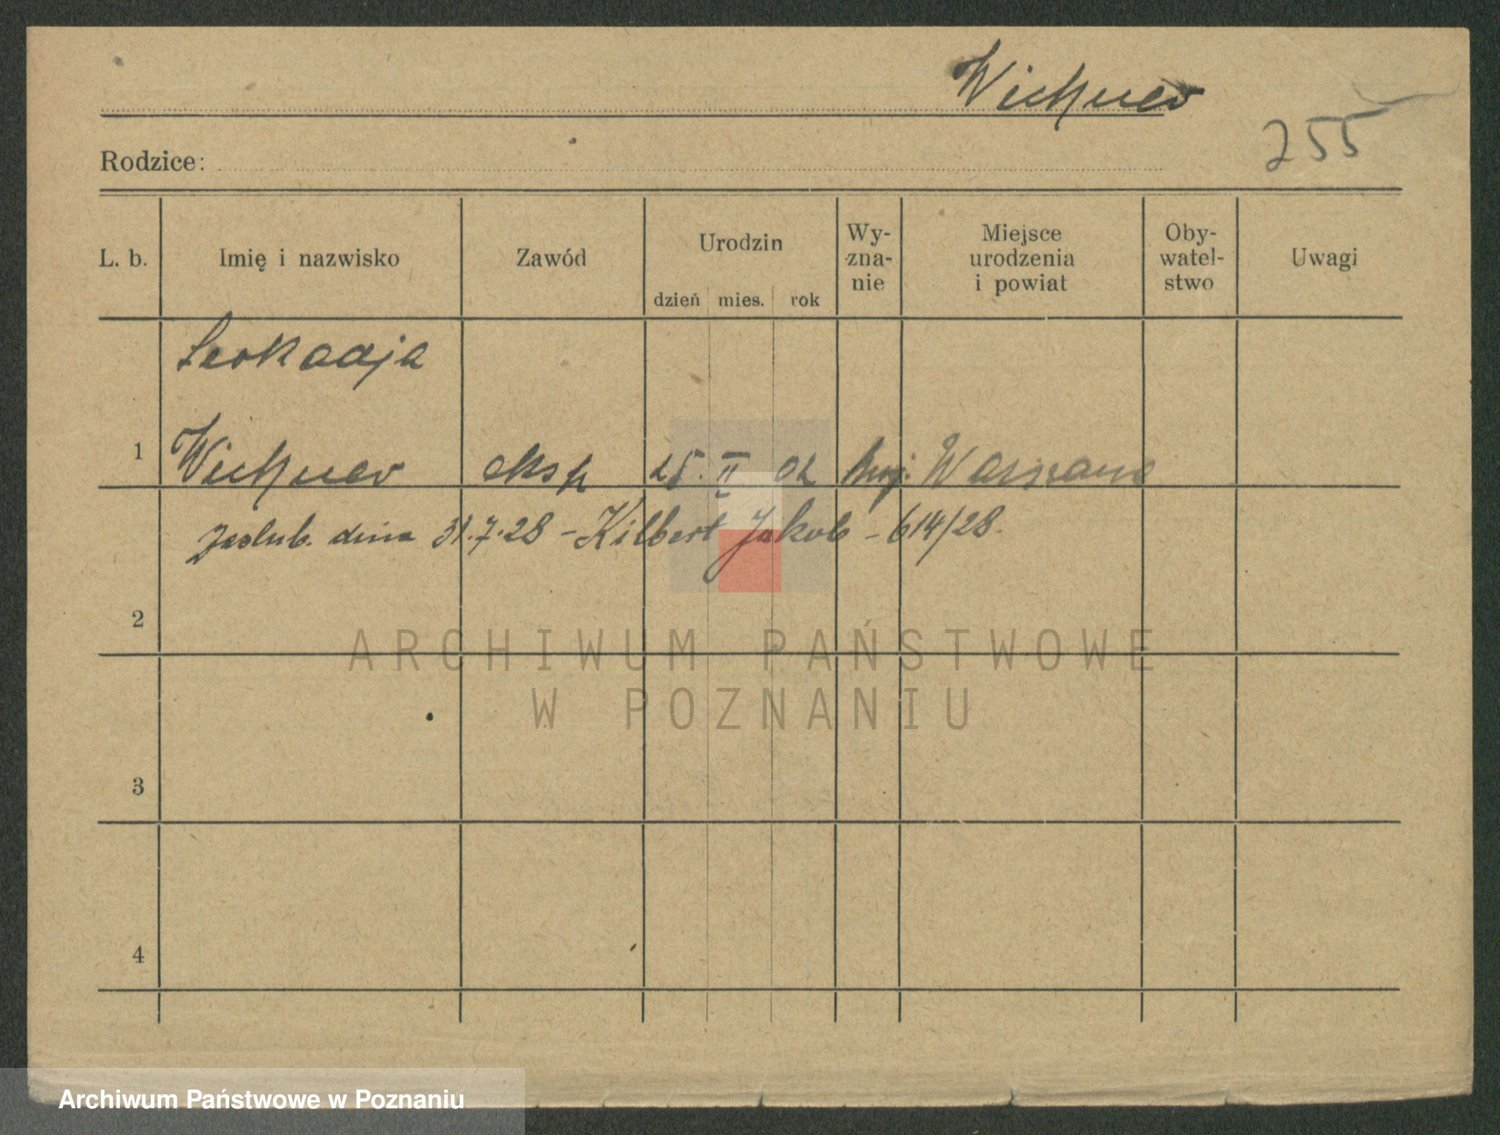 Wichner
255
Rodzice:
L. b. Imię i nazwisko Zawód Urodzin dzień mies. rok Wy-zna-nie Miejsce urodzenia i powiat Oby-watel-stwo Uwagi
Leokadja
1 Wichner eksp 25. II 02 Warszawa
zaslub. dnia 31.7.28 - Kilbert Jakob - 614/28.
2
ARCHIWUM PAŃSTWOWE
W POZNANIU
3
4
Archiwum Państwowe w Poznaniu